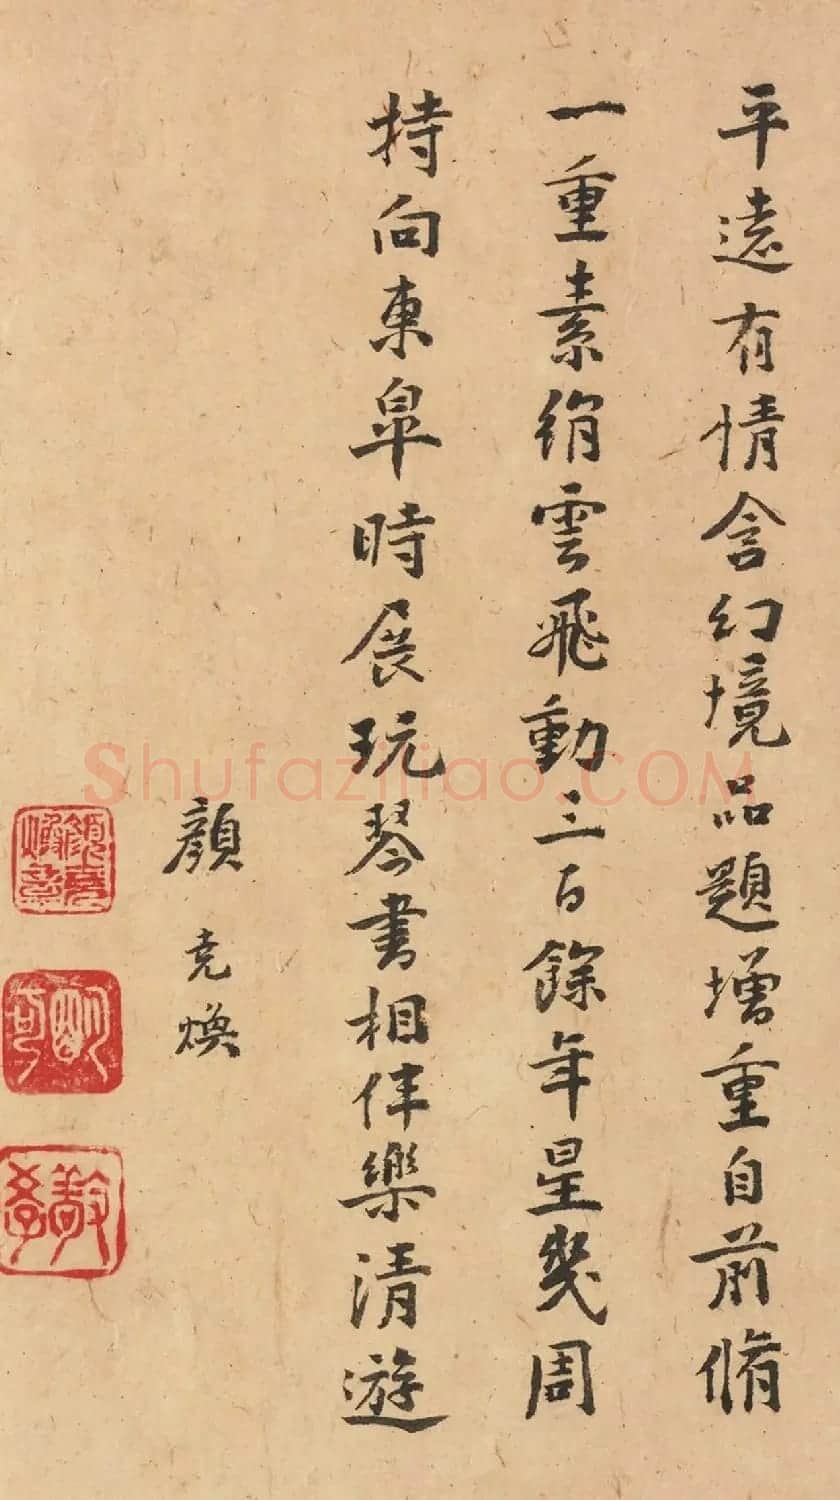 平遠有情含幻境品題增重自前脩
一重素絹雲飛動三百餘年星幾周
持向東皐時展玩琴書相伴樂清遊
顏堯煥
Shufaziliao.COM